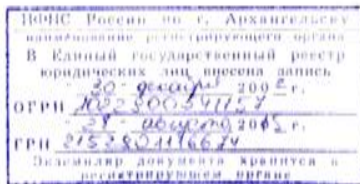 ИФНС России по г. Архангельску
наименование регистрирующего органа
В Единый государственный реестр
юридических лиц внесена запись
30 декабря 2002 г.
ОГРН
28 августа 2015 г.
ГРН
Экземпляр документа хранится в
регистрирующем органе